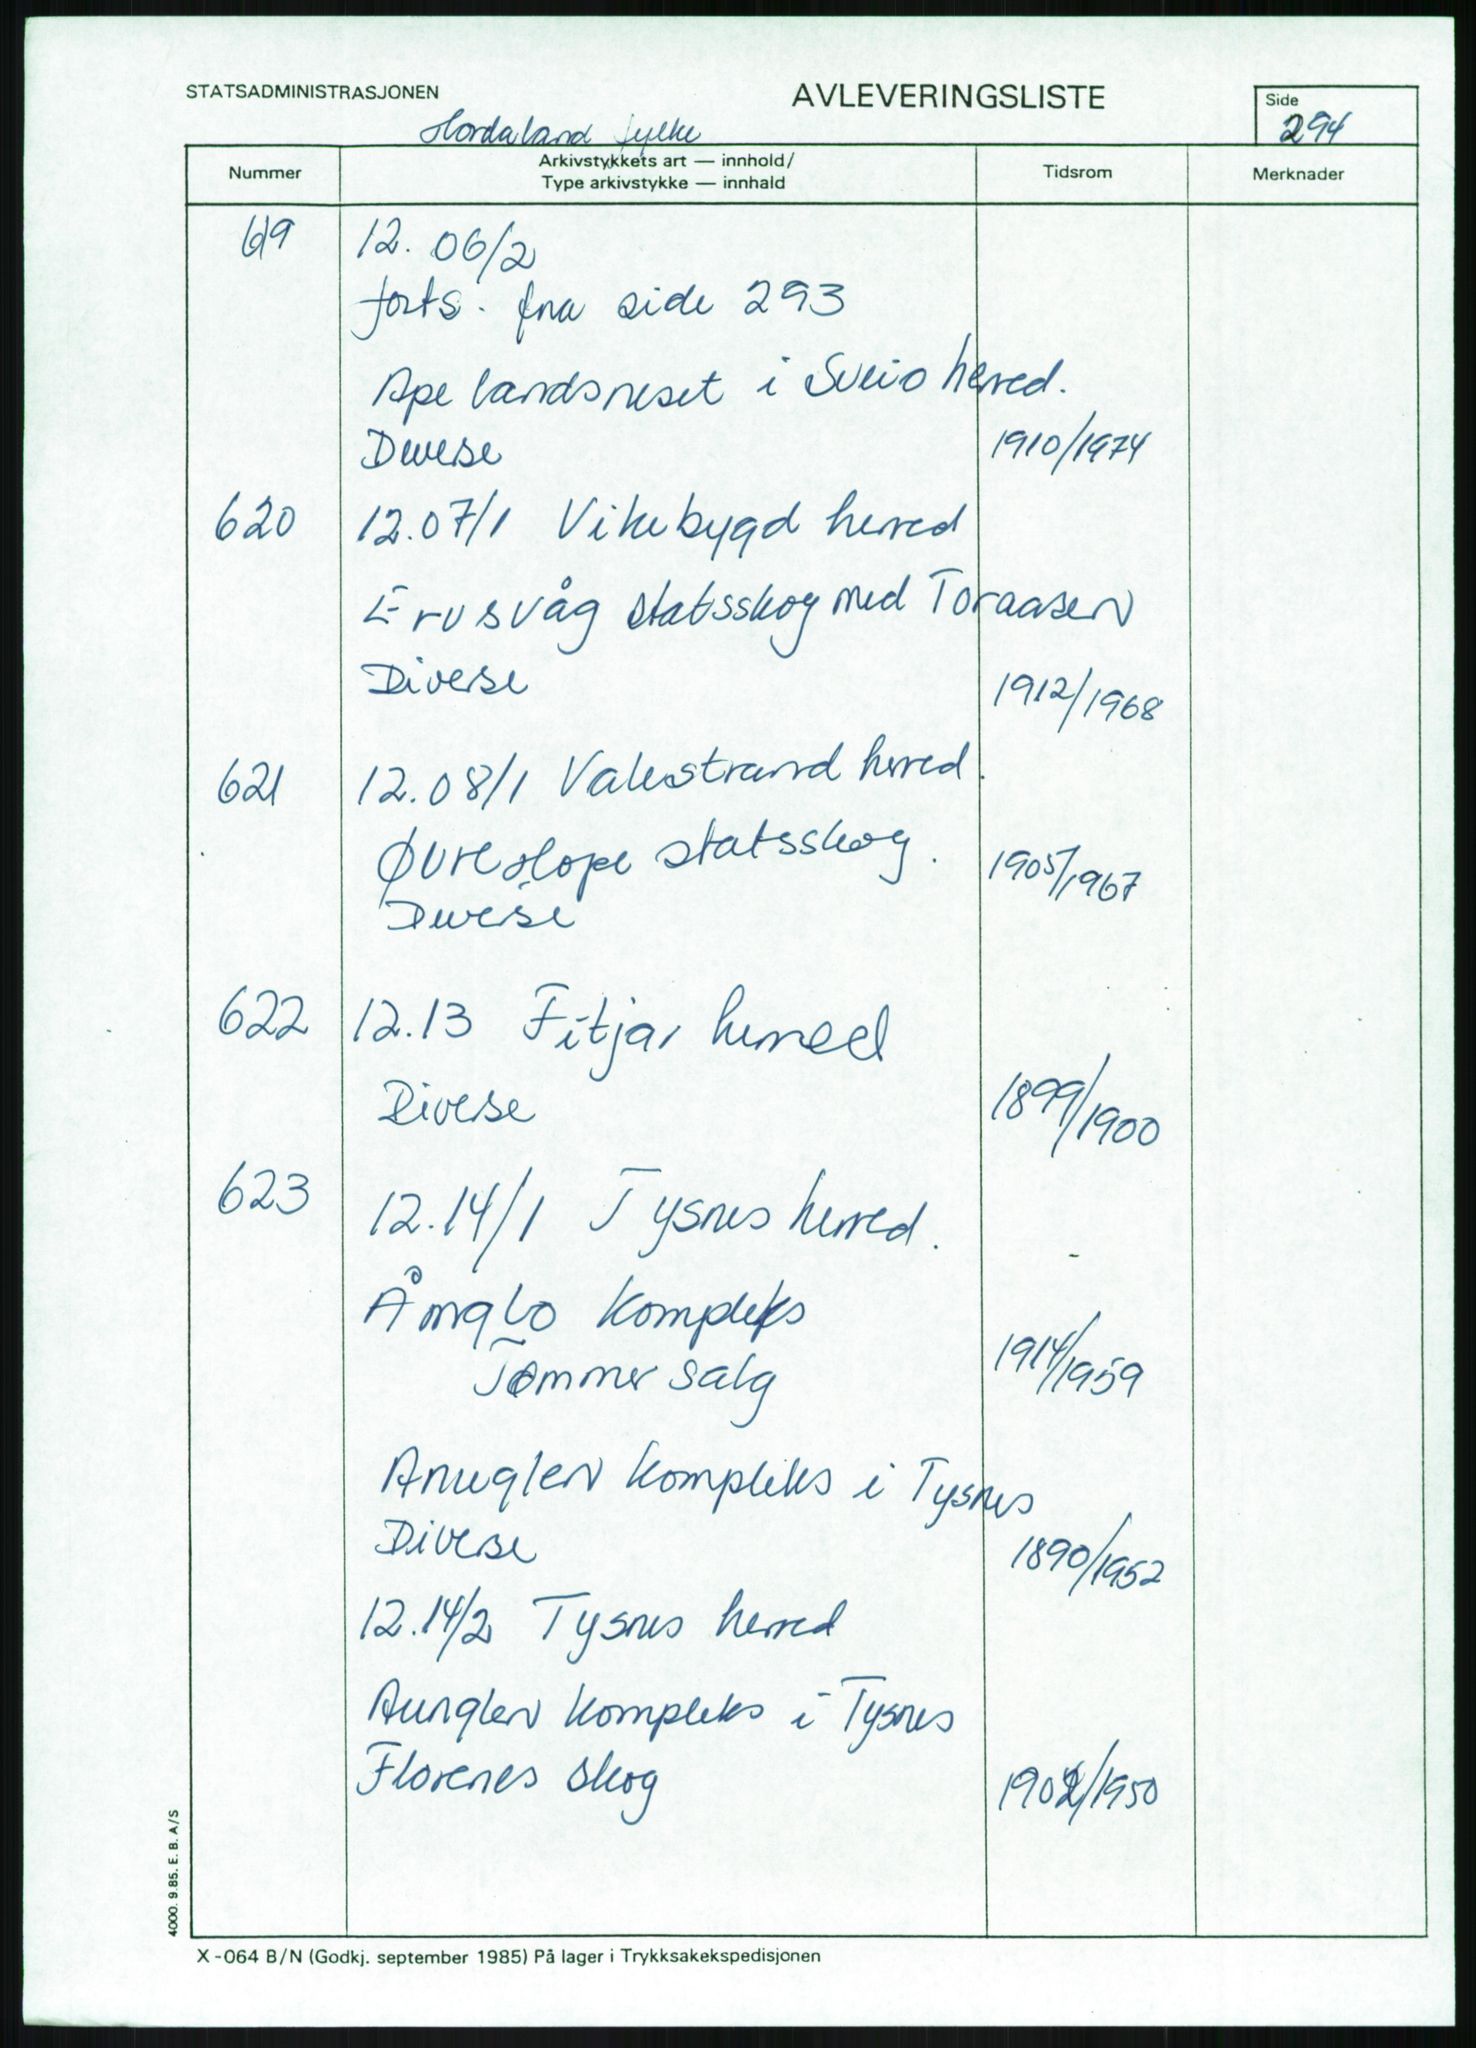 STATSADMINISTRASJONEN
AVLEVERINGSLISTE
Side
294
Hordaland fylke
Nummer
Arkivstykkets art — innhold/
Type arkivstykke — innhald
Tidsrom
Merknader
619 12. 06/2
forts. fra side 293
Apelandsneset i Sveio herred.
Diverse 1910/1974
620 12.07/1 Vikebygd herred
statsskog med Toraasen
Diverse 1912/1968
621 12.08/1 Valestrand herred.
Øvre Hope statsskog. 1905/1967
Diverse
622 12.13 Fitjar herred
Diverse 1899/1900
623 12.14/1 Tysnes herred.
kompleks
Tømmer salg 1914/1959
Anuglen kompleks i Tysnes
Diverse 1890/1952
12.14/2 Tysnes herred
Anuglen kompleks i Tysnes
Florenes skog 1902/1950
4000. 9.85. E. B. A/S
X-064 B/N (Godkj. september 1985) På lager i Trykksakekspedisjonen